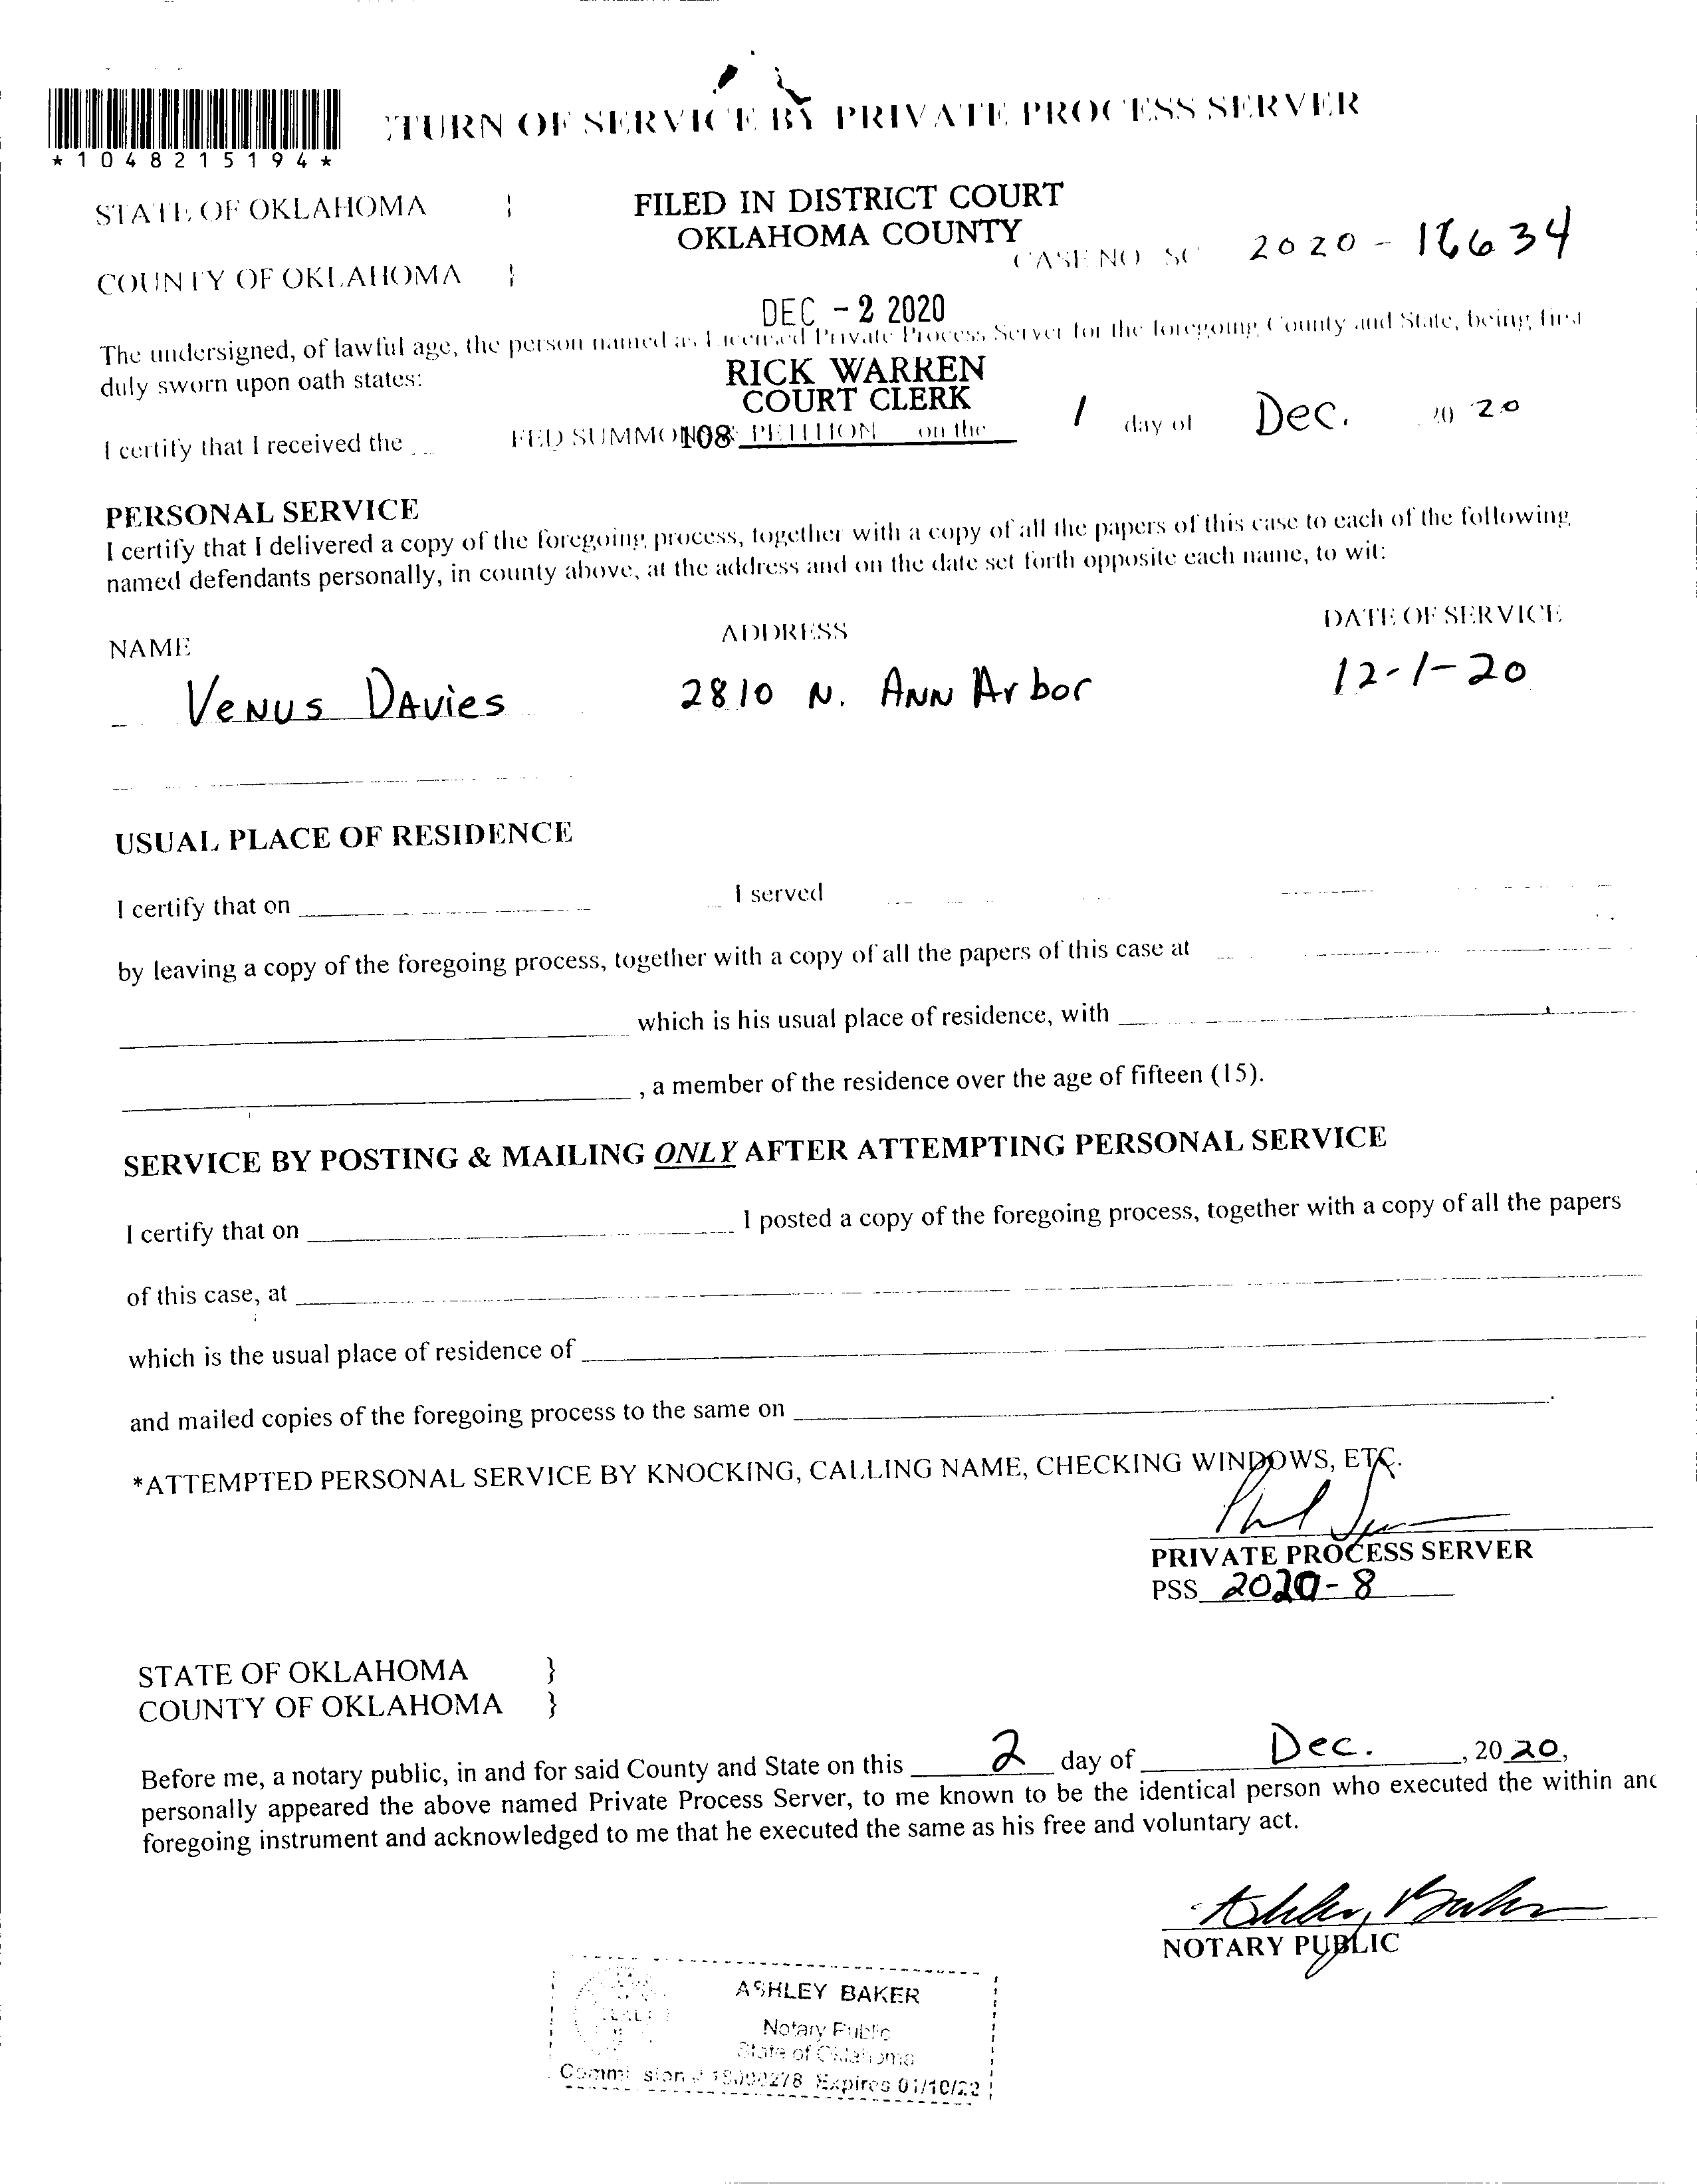 TURN OF SERVICE BY PRIVATE PROCESS SERVER
*1048215194*
STATE OF OKLAHOMA }
FILED IN DISTRICT COURT
OKLAHOMA COUNTY
CASE NO SC 2020-16634
COUNTY OF OKLAHOMA }
DEC - 2 2020
The undersigned, of lawful age, the person named as Licensed Private Process Server for the foregoing County and State, being first
duly sworn upon oath states:
RICK WARREN
COURT CLERK
I certify that I received the FED SUMMONS & PETITION on the 1 day of Dec. 20 20
108
PERSONAL SERVICE
I certify that I delivered a copy of the foregoing process, together with a copy of all the papers of this case to each of the following
named defendants personally, in county above, at the address and on the date set forth opposite each name, to wit:
NAME ADDRESS DATE OF SERVICE
Venus Davies 2810 N. Ann Arbor 12-1-20
USUAL PLACE OF RESIDENCE
I certify that on I served
by leaving a copy of the foregoing process, together with a copy of all the papers of this case at
which is his usual place of residence, with
, a member of the residence over the age of fifteen (15).
SERVICE BY POSTING & MAILING ONLY AFTER ATTEMPTING PERSONAL SERVICE
I certify that on I posted a copy of the foregoing process, together with a copy of all the papers
of this case, at
which is the usual place of residence of
and mailed copies of the foregoing process to the same on .
*ATTEMPTED PERSONAL SERVICE BY KNOCKING, CALLING NAME, CHECKING WINDOWS, ETC.
PRIVATE PROCESS SERVER
PSS 2020-8
STATE OF OKLAHOMA }
COUNTY OF OKLAHOMA }
Before me, a notary public, in and for said County and State on this 2 day of Dec., 20 20,
personally appeared the above named Private Process Server, to me known to be the identical person who executed the within and
foregoing instrument and acknowledged to me that he executed the same as his free and voluntary act.
Ashley Baker
NOTARY PUBLIC
ASHLEY BAKER
Notary Public
State of Oklahoma
Commission # Expires 01/10/22